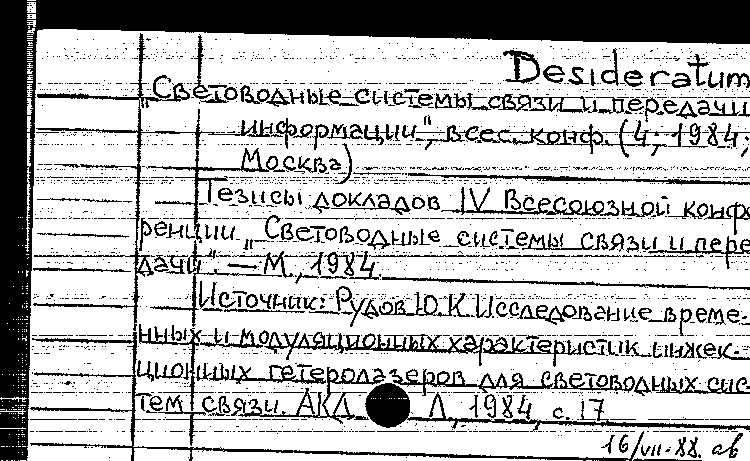 Desideratum
„Световодные системы связи и передачи
информации", всес. конф. (4; 1984;
Москва)
Тезисы докладов IV Всесоюзной конфе
ренции „Световодные системы связи и пере
дачи". — М., 1984.
Источник: Рудов Ю.К Исследование време-
нных и модуляционных характеристик инжек-
ционных гетеролазеров для световодных сис
тем связи. АКД Л., 1984, с. 17
16/VII-88. ав